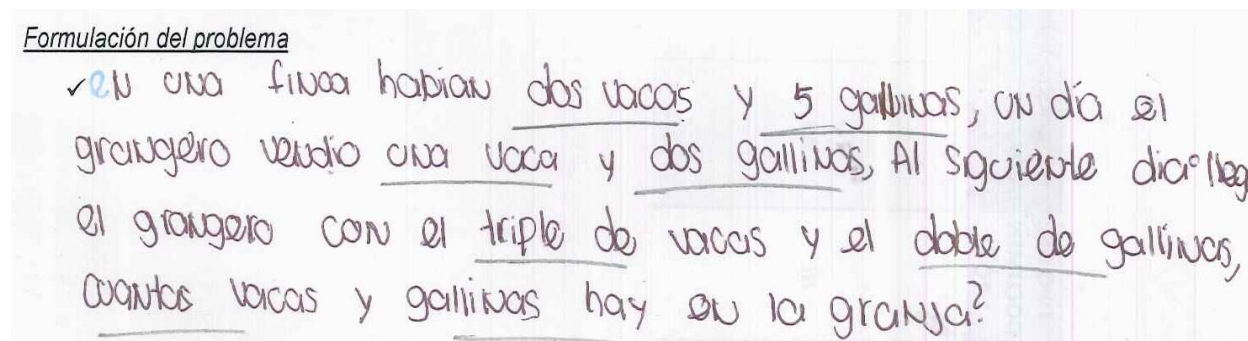 Formulación del problema
✓ en una finca habian dos vacas y 5 gallinas, un día el
grangero vendio una vaca y dos gallinas, Al siguiente dia lleg
el grangero con el triple de vacas y el doble de gallinas,
cuantas vacas y gallinas hay en la granja?